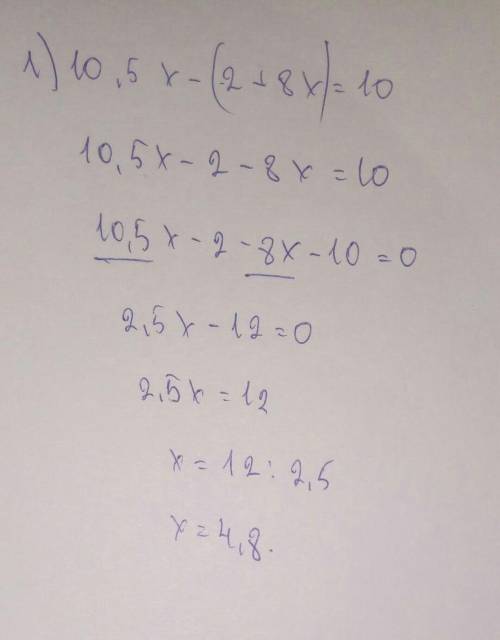 1) 10,5 x - (2 + 8x) = 10
10,5x - 2 - 8x = 10
10,5x - 2 - 8x - 10 = 0
2,5x - 12 = 0
2,5x = 12
x = 12 : 2,5
x = 4,8.